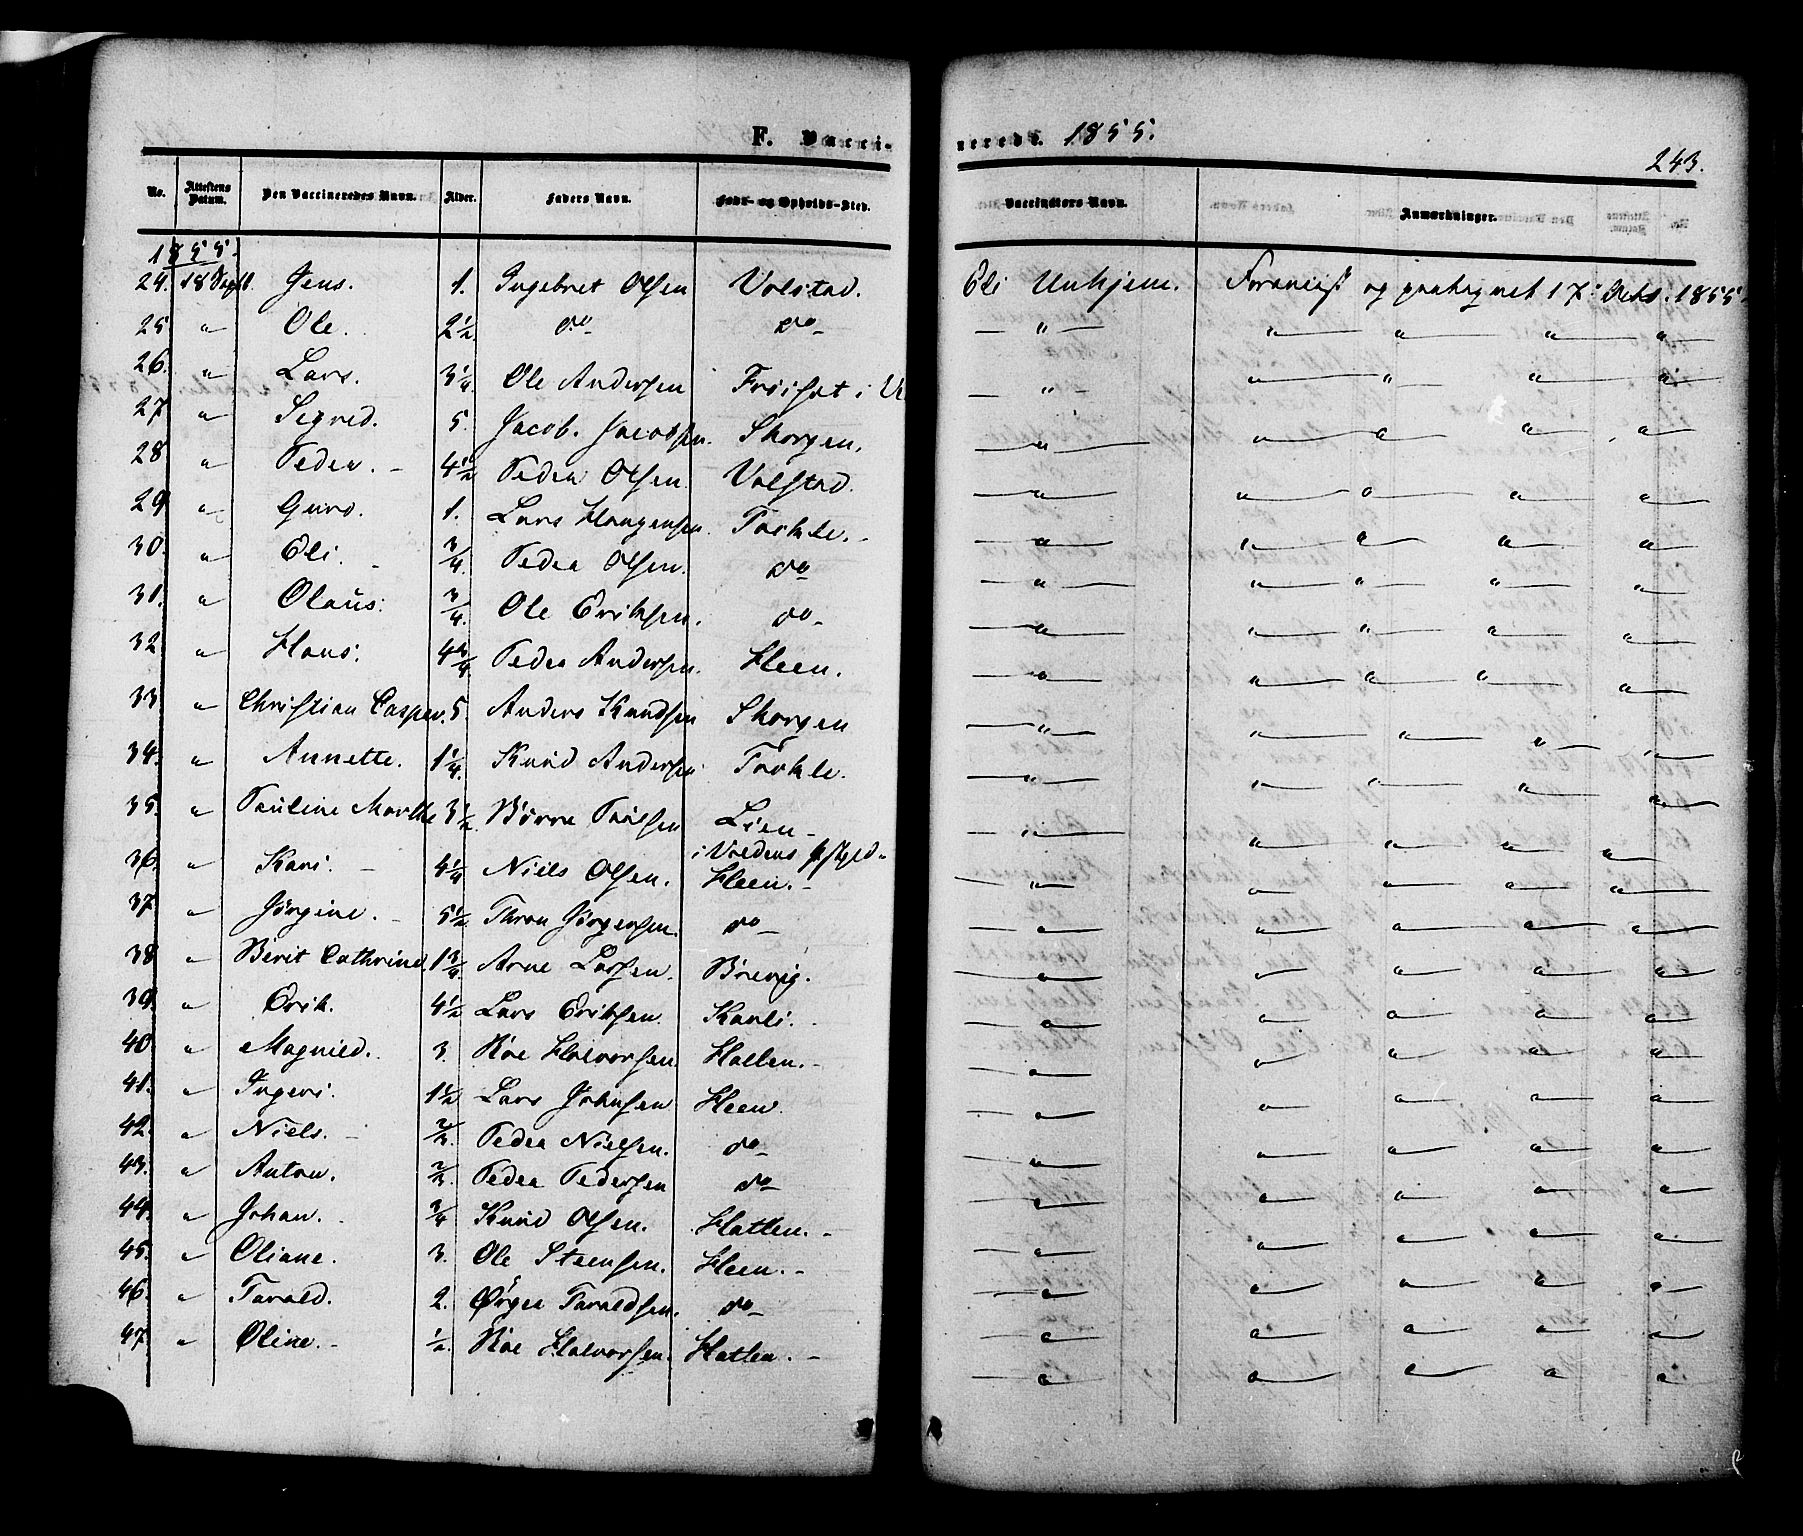 F. Vaccinerede. 1855.
243.
No. Attestens Datum. Den Vaccineredes Navn. Alder. Faders Navn. Føde- og Opholds-Sted. Vaccinators Navn. Anmærkninger.
1855.
24. 18 Septb. Jens. 1. Ingebret Olsen Volstad. Eli Unhjem. Foreviist og paategnet 17 Octb. 1855.
25. " Ole. 2½ do do " " " " "
26. " Lars. 3¼ Ole Andersen Friiset i " " " " "
27. " Segred. 5. Jacob Jacobsen. Skorgen. " " " " "
28 " Peder. 4½ Peder Olsen Volstad. " " " " "
29 " Guro. 1. Lars Haagensen Torkle. " " " " "
30. " Eli. ¾ Peder Olsen. do " " " " "
31. " Olaus. ¾ Ole Eriksen. do " " " " "
32 " Hans. 4¾ Peder Andersen. Heen. " " " " "
33 " Christian Casper. 5. Anders Knudsen Skorgen " " " " "
34. " Annette. 1¼ Knud Andersen Torkle. " " " " "
35. " Pauline Marthe 3½ Børre Lien i Voldens Pstgjeld " " " " "
36. " Kari. 4¼ Niels Olsen. Heen. " " " " "
37. " Jørgine. 5½ Thron Jørgensen. do " " " " "
38 " Berit Cathrine. 1¾ Arne Larsen. Brevig. " " " " "
39. " Erik. 4½ Lars Eriksen. Karli. " " " " "
40 " Magnild. 3. Roe Halvorsen Hatlen. " " " " "
41. " Ingeri. 1½ Lars Johnsen Heen. " " " " "
42. " Niels. ⅔ Peder Nielsen. do " " " " "
43. " Anton. ⅔ Peder Pedersen do " " " " "
44. " Johan. ¾ Knud Olsen. Hatlen. " " " " "
45. " Oliane. 3. Ole Steensen. Heen. " " " " "
46. " Tarald. 2. Ørger Taraldsen. do " " " " "
47. " Oline. ½ Roe Halvorsen. Hatlen. " " " " "